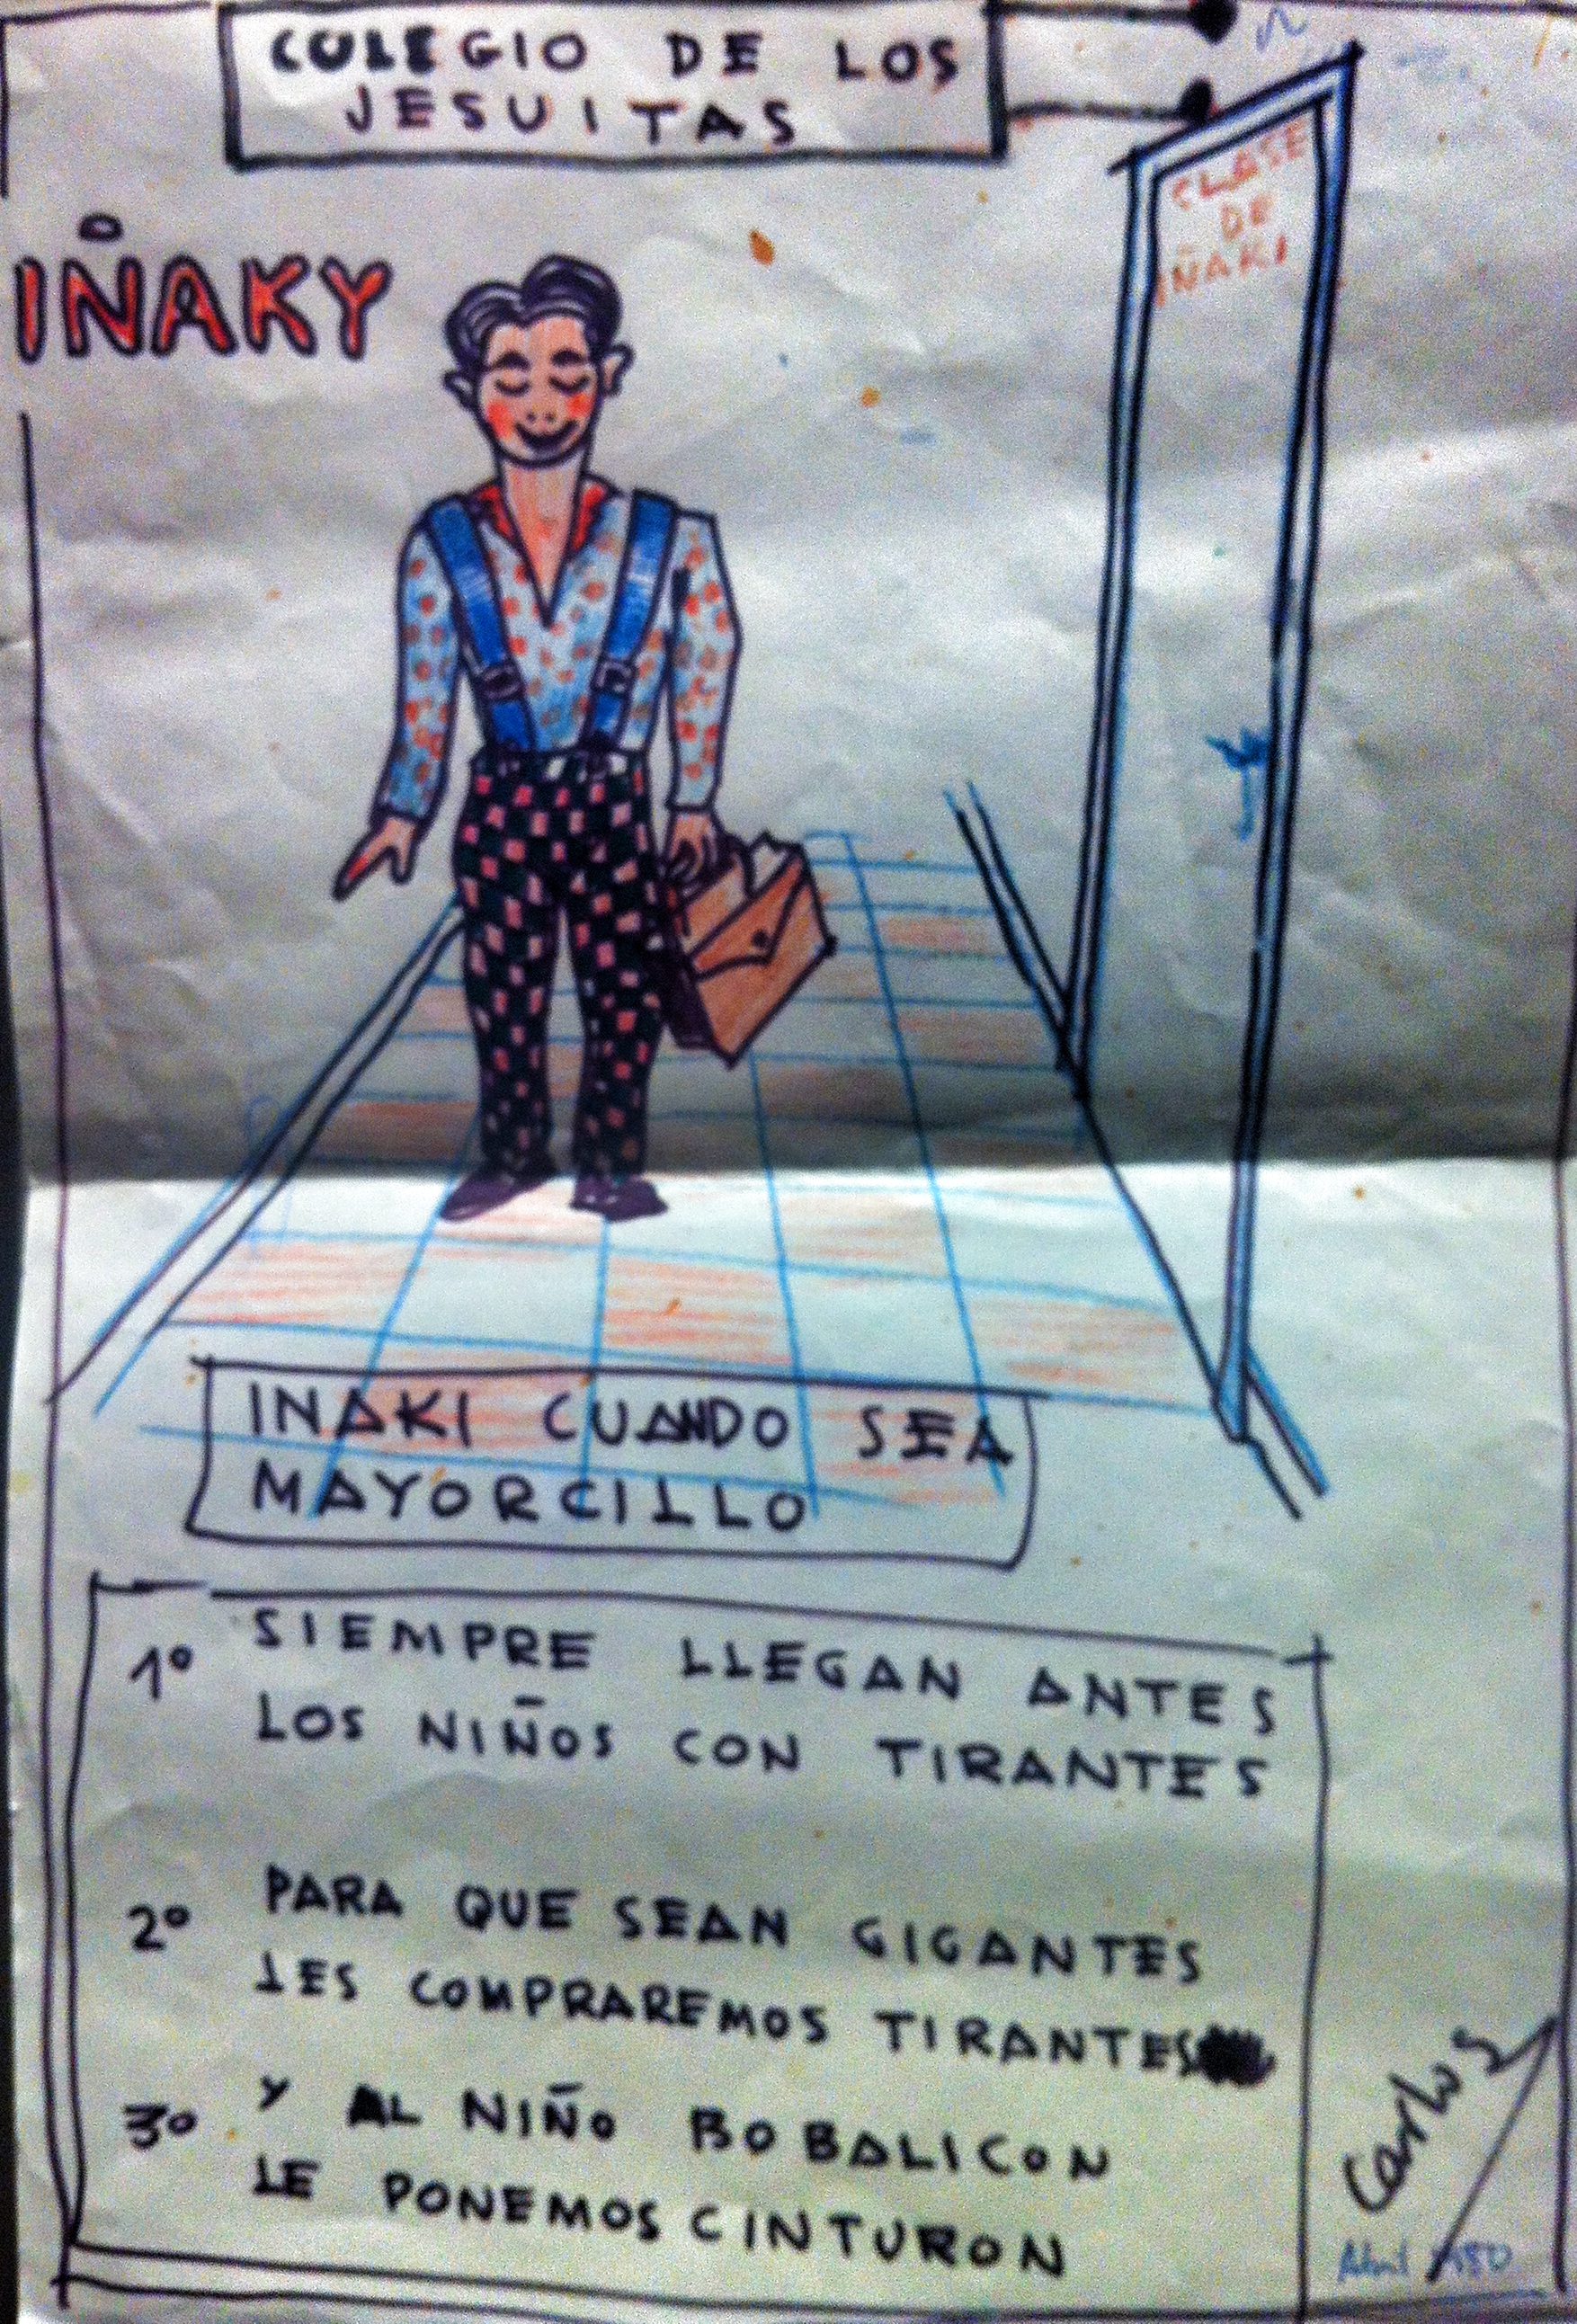 COLEGIO DE LOS
JESUITAS
CLASE
DE
IÑAKI
IÑAKY
IÑAKI CUANDO SEA
MAYORCILLO
1º SIEMPRE LLEGAN ANTES
LOS NIÑOS CON TIRANTES
2º PARA QUE SEAN GIGANTES
LES COMPRAREMOS TIRANTES
3º Y AL NIÑO BOBALICON
LE PONEMOS CINTURON
Carlos
Abril 1980